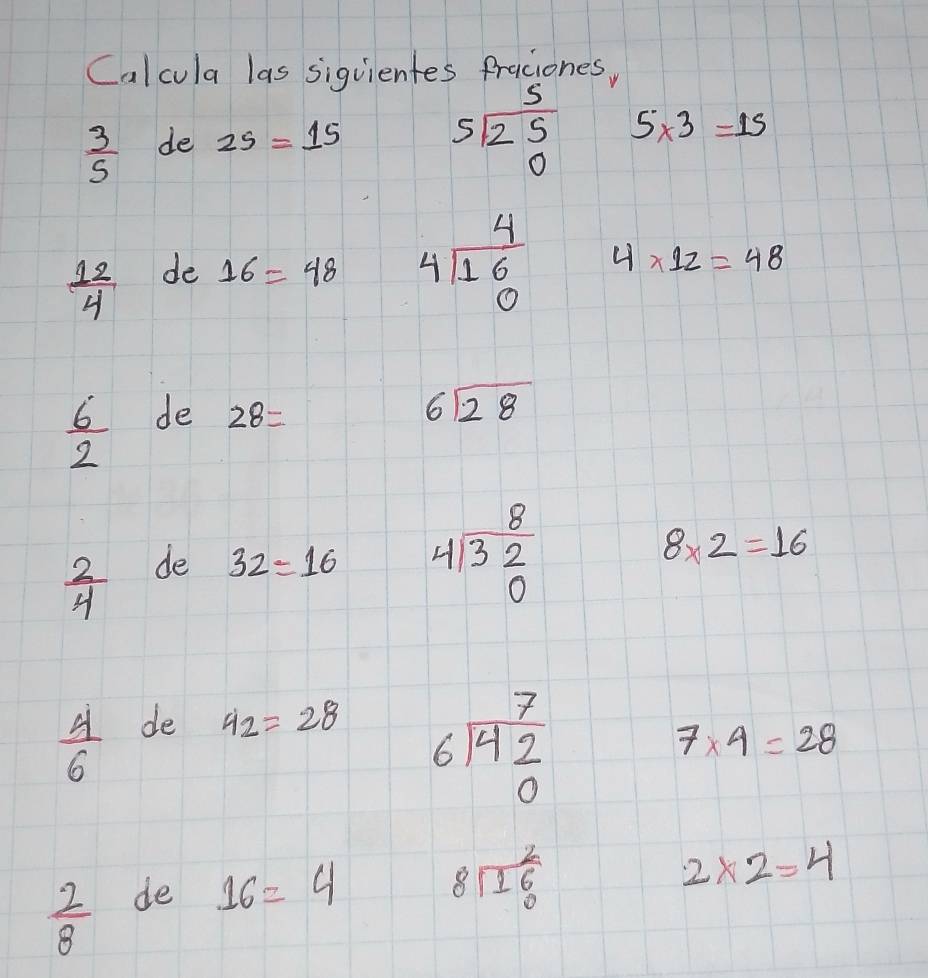 Calcula las siguientes fraciones,
3/5 de 25 = 15   5   5√25   0   5 x 3 = 15
12/4 de 16 = 48   4   4√16   0   4 x 12 = 48
6/2 de 28 =   6√28
2/4 de 32 = 16   8   4√32   0   8 x 2 = 16
4/6 de 42 = 28   7   6√42   0   7 x 4 = 28
2/8 de 16 = 4   2   8√16   0   2 x 2 = 4